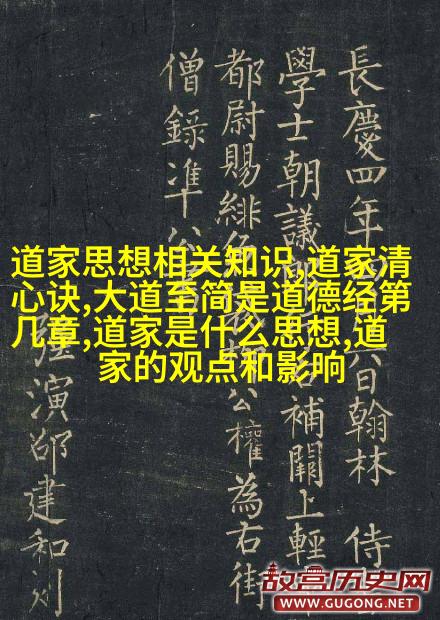 道家思想相关知识,道家清
心诀,大道至简是道德经第
几章,道家是什么思想,道
家的观点和影响
長慶四年六日翰林侍
學士朝議補闕上輕
都尉賜緋公權為右街
僧錄准公
強演邵建和刻
故宫历史网
WWW.GUGONG.NET